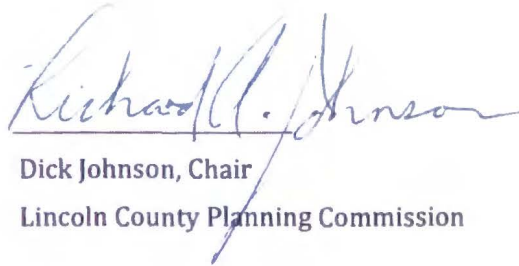 Richard A. Johnson
Dick Johnson, Chair
Lincoln County Planning Commission